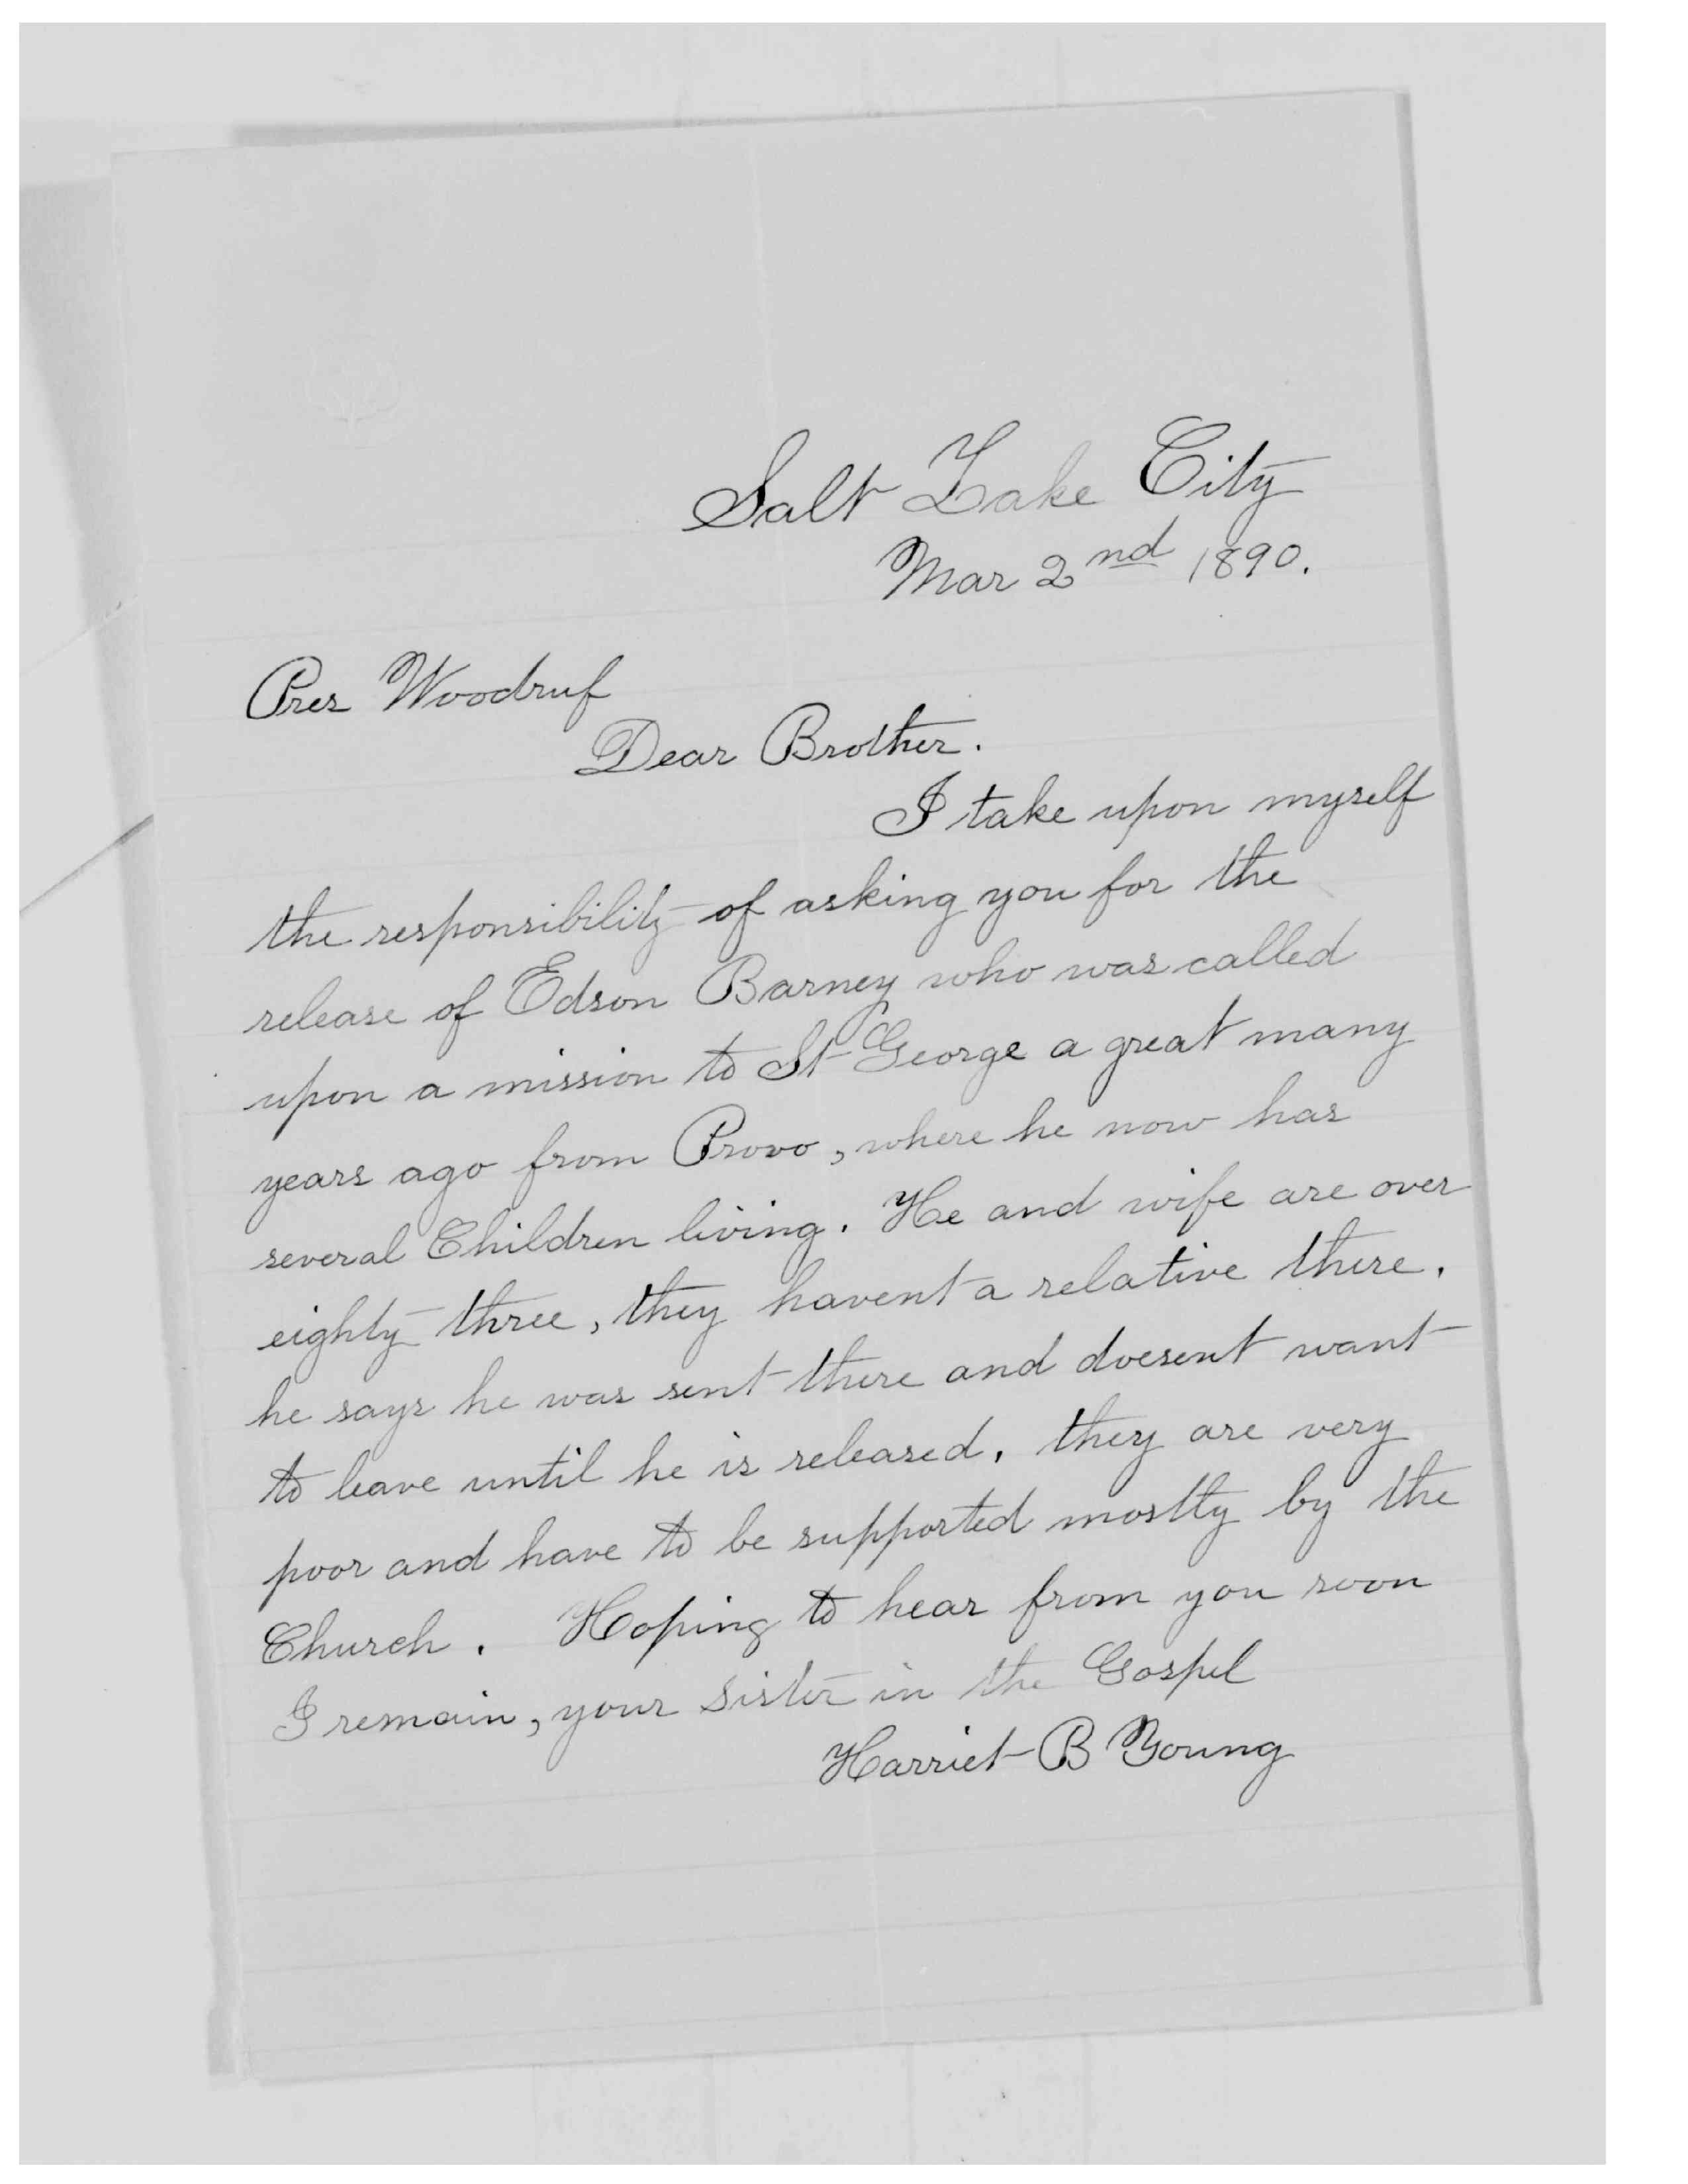 Salt Lake City
Mar 2nd 1890.
Pres Woodruf
Dear Brother.
I take upon myself
the responsibility of asking you for the
release of Edson Barney who was called
upon a mission to St George a great many
years ago from Provo, where he now has
several Children living. He and wife are over
eighty three, they havent a relative there.
he says he was sent there and doesent want
to leave until he is released. they are very
poor and have to be supported mostly by the
Church. Hoping to hear from you soon
I remain, your sister in the Gospel
Harriet B Young